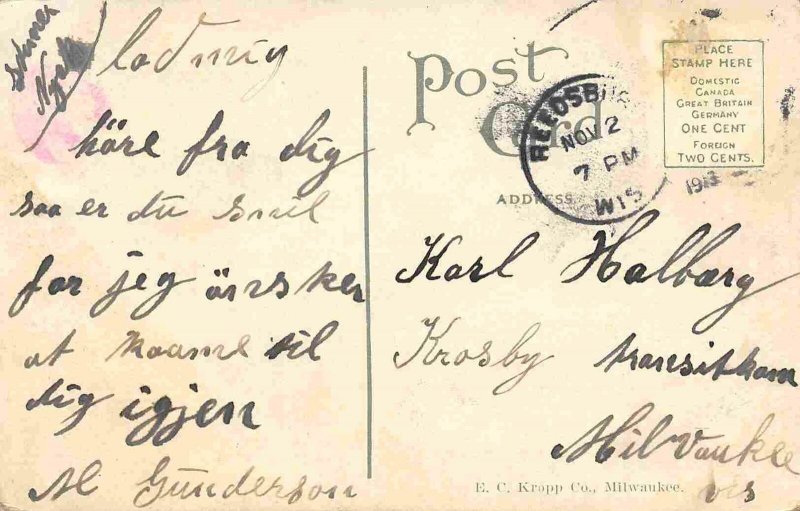 lad mig
höre fra dig
saa er du snil
for jeg önsker
at kaame til
dig igjen
M Gunderson
Post
Card
ADDRESS
PLACE
STAMP HERE
DOMESTIC
CANADA
GREAT BRITAIN
GERMANY
ONE CENT
FOREIGN
TWO CENTS.
REEDSBURG
NOV 2
7 PM
WIS
1913
Karl Halbarg
Krosby transitkam
Milvaukee
vis
E. C. Kropp Co., Milwaukee.